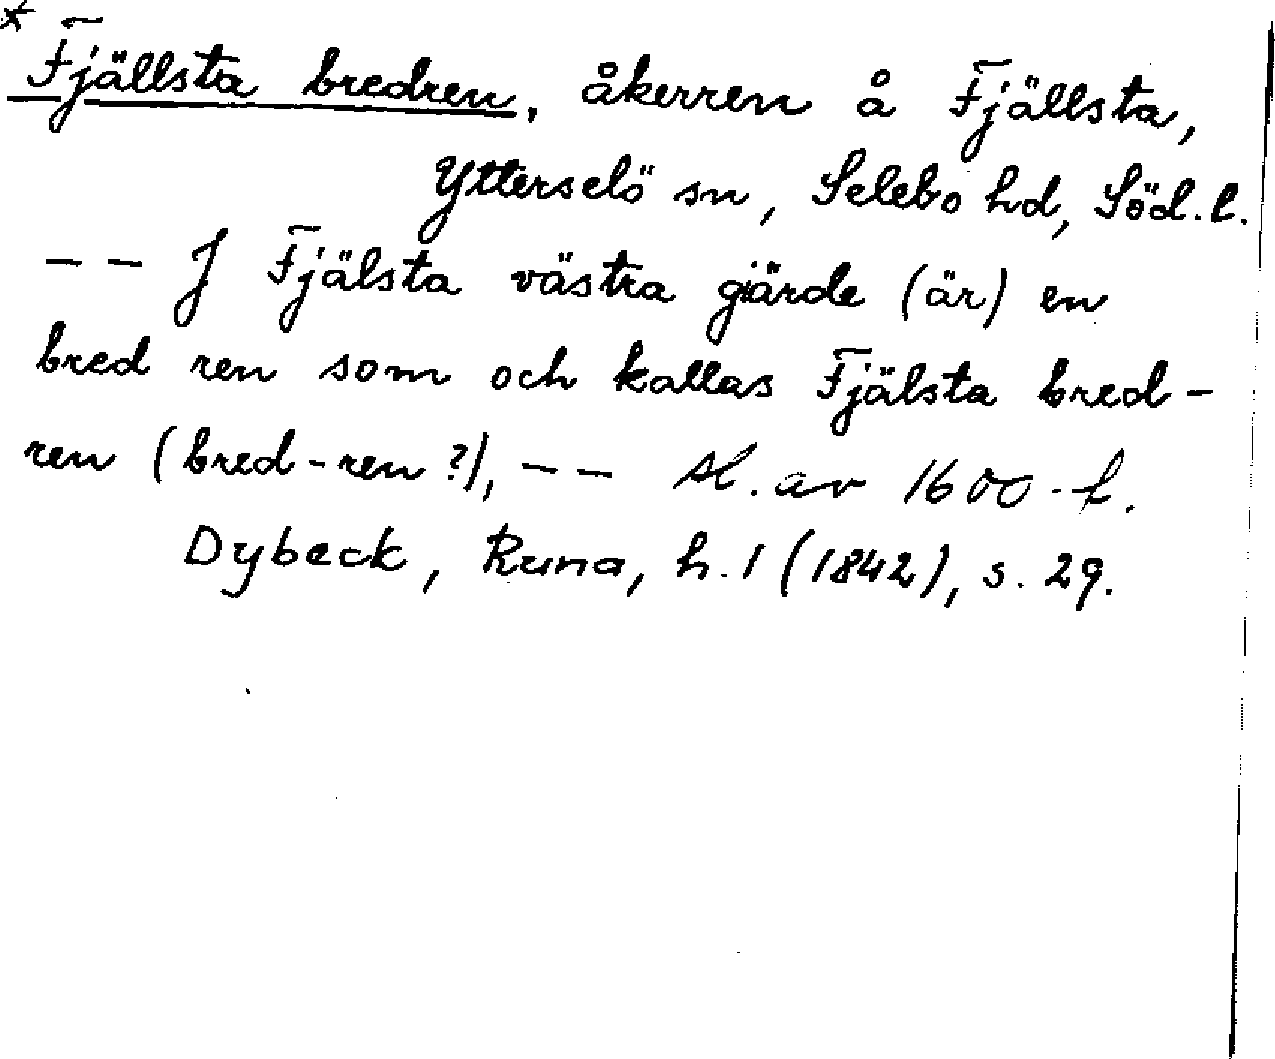 * Fjällsta bredren, åkerren å Fjällsta,
Ytterselö sn, Selebo hd, Söd. l.
-- J Fjälsta västra giärde (är) en
bred ren som och kallas Fjälsta bred-
ren (bred-ren?), -- sl. av 1600-t.
Dybeck, Runa, h. 1 (1842), s. 29.